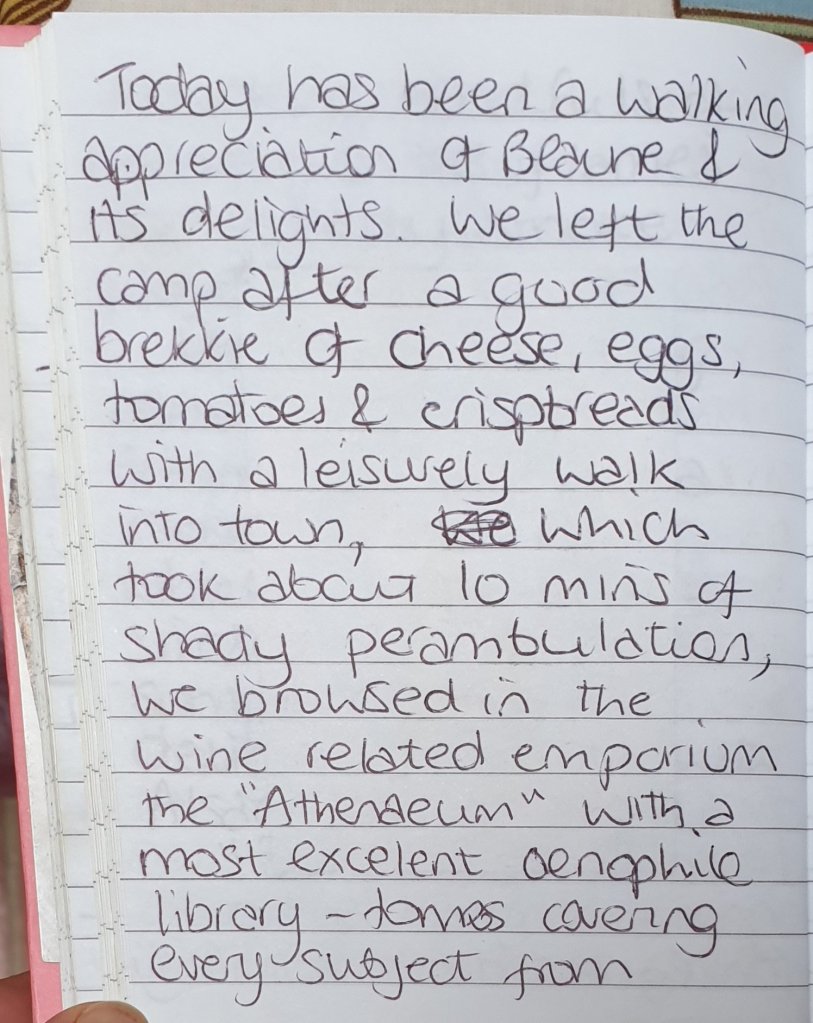 Today has been a walking
appreciation of Beaune &
its delights. We left the
camp after a good
brekkie of cheese, eggs,
tomatoes & crispbreads
with a leisurely walk
into town, which
took about 10 mins of
shady perambulation,
we browsed in the
wine related emporium
the "Athenaeum" with a
most excelent oenophile
library - tomes covering
every subject from